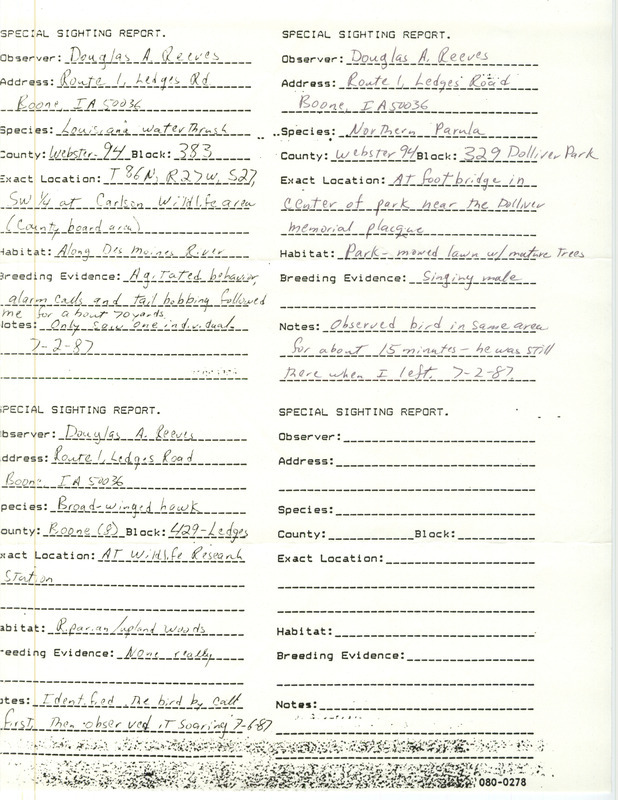 SPECIAL SIGHTING REPORT.
Observer: Douglas A. Reeves
Address: Route 1, Ledges Rd
Boone, IA 50036
Species: Louisiana waterthrush
County: Webster-94 Block: 383
Exact Location: T86N, R27W, S27,
SW 1/4 at Carlson Wildlife area
(County board area)
Habitat: Along Des Moines River
Breeding Evidence: Agitated behavior,
alarm calls and tail bobbing followed
me for about 70 yards.
Notes: Only saw one individual.
7-2-87
SPECIAL SIGHTING REPORT.
Observer: Douglas A. Reeves
Address: Route 1, Ledges Road
Boone, IA 50036
Species: Northern Parula
County: Webster 94 Block: 329 Dolliver Park
Exact Location: AT footbridge in
center of park near the Dolliver
memorial placque
Habitat: Park - mowed lawn w/ mature Trees
Breeding Evidence: Singing male
Notes: Observed bird in same area
for about 15 minutes - he was still
there when I left. 7-2-87
SPECIAL SIGHTING REPORT.
bserver: Douglas A. Reeves
ddress: Route 1, Ledges Road
Boone, IA 50036
pecies: Broad-winged hawk
ounty: Boone (8) Block: 429-Ledges
xact Location: AT Wildlife Research
Station
abitat: Riparian/upland woods
reeding Evidence: None really
otes: Identified the bird by call
first, then observed it soaring 7-6-87
SPECIAL SIGHTING REPORT.
Observer:
Address:
Species:
County: Block:
Exact Location:
Habitat:
Breeding Evidence:
Notes:
080-0278